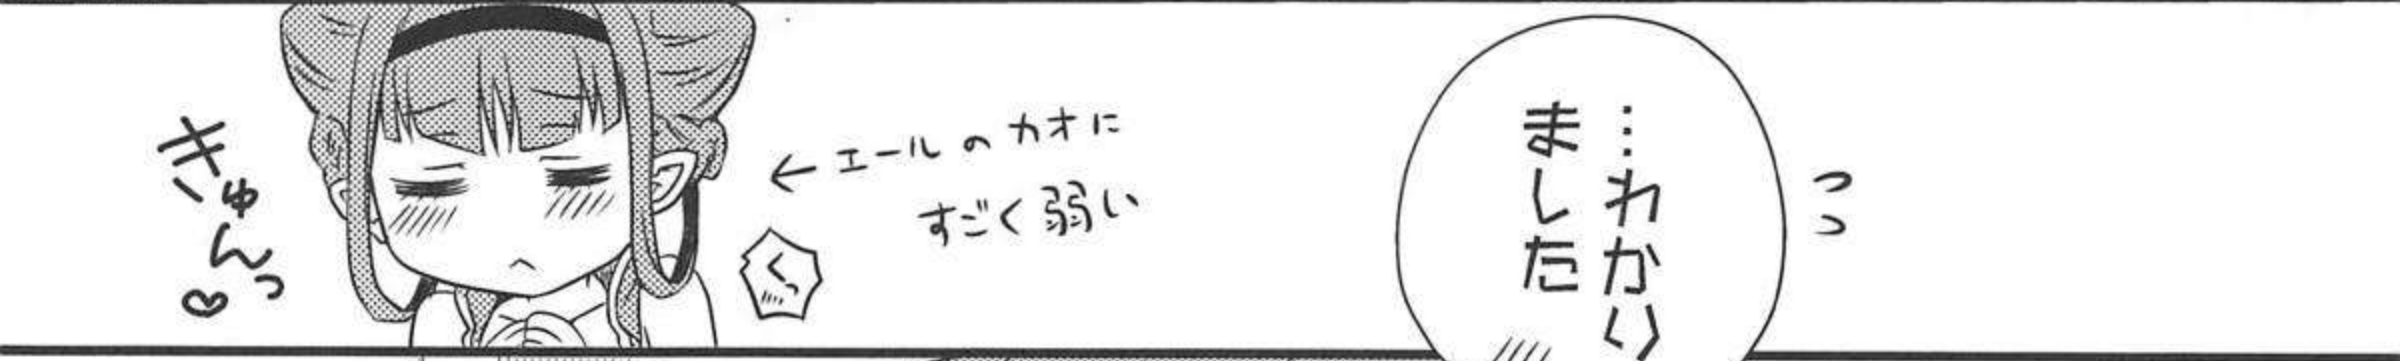 っっ
…わかり
ました
←エールのカオに
すごく弱い
くっ
きゅんっ♡